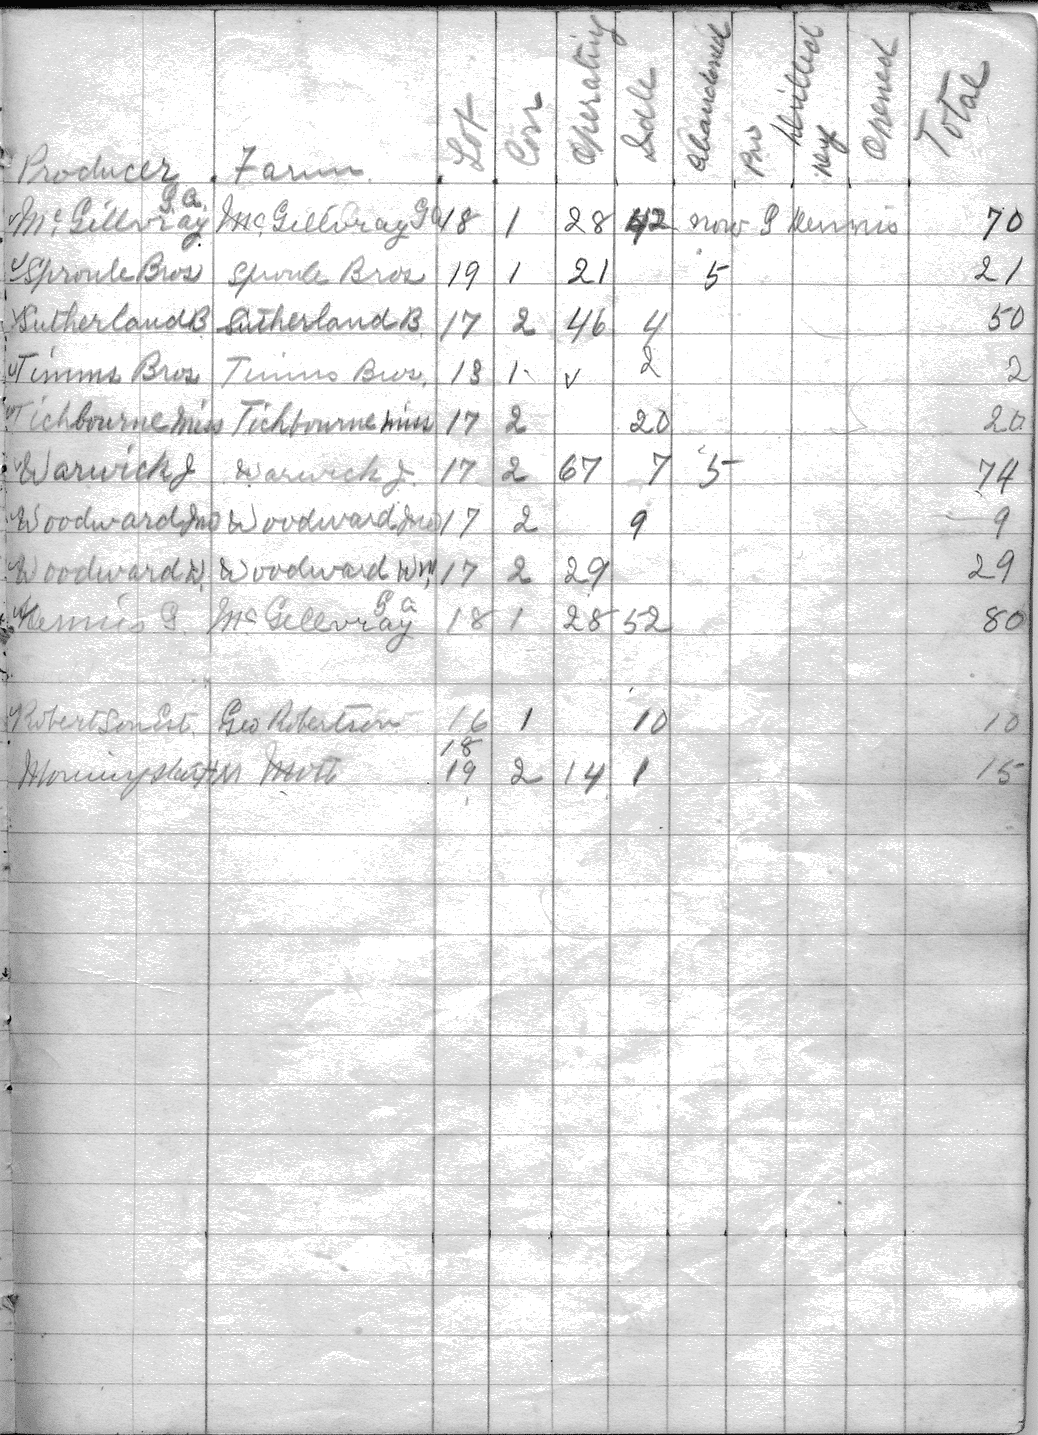 Producer Farm Lot Con Operating Idle Abandoned Pro Drilled Dry Opened Total
McGillvray G A McGillvray G A 18 1 28 42 now G Hennis 70
Sproule Bros Sproule Bros 19 1 21 5 21
Sutherland B. Sutherland B. 17 2 46 4 50
Timms Bros Timms Bros. 18 1 2 2
Tichbourne Miss Tichbourne Miss 17 2 20 20
Warwick J Warwick J. 17 2 67 7 5 74
Woodward Jno Woodward Jno 17 2 9 9
Woodward W. Woodward Wm 17 2 29 29
Hennis G. McGillvray G A 18 1 28 52 80
Robertson Est. Geo Robertson 16 1 10 10
18
Morningstar 19 2 14 1 15